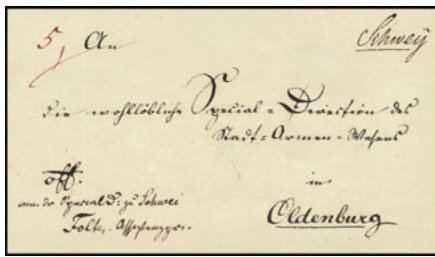 5 An
Schwey
die wohllöbliche Special=Direction des
Stadt=Armen=Wesens
in
Oldenburg
off.
von der Speciald. zu Schwei